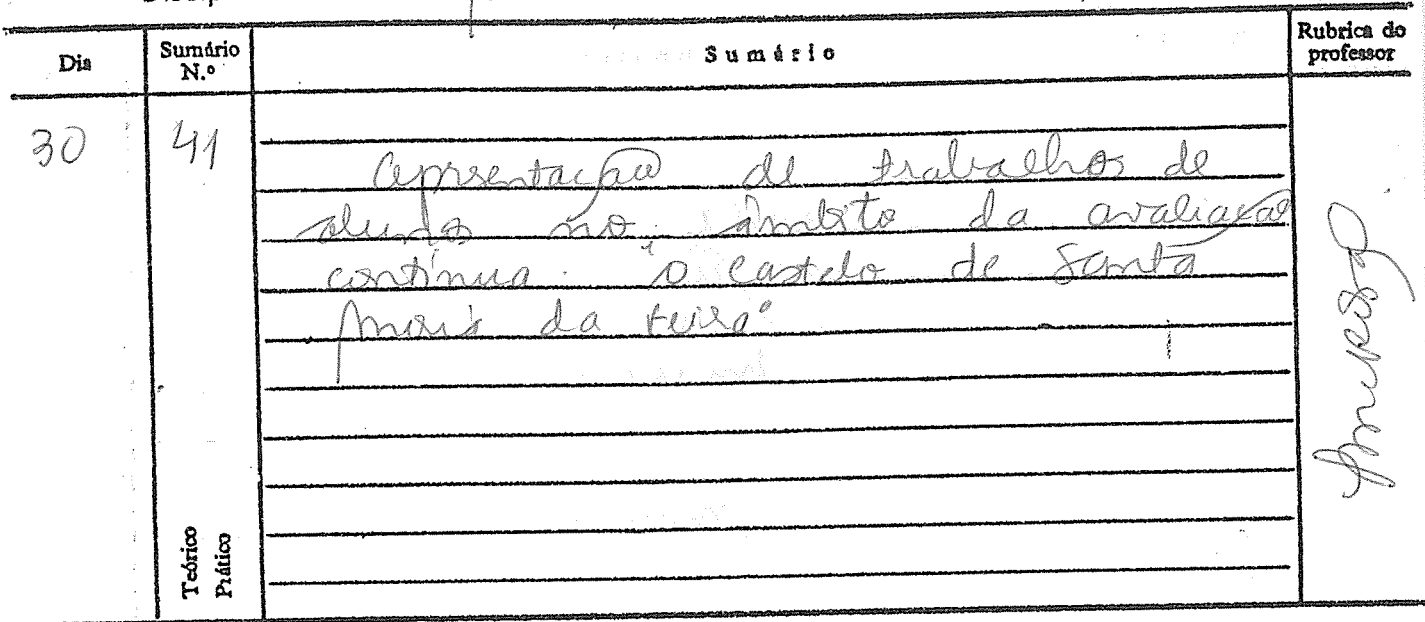 Dia
Sumário N.º
Sumário
Rubrica do professor
30
41
Apresentação de trabalhos de
alunos no âmbito da avaliação
contínua. "O Castelo de Santa
Maria da Feira"
Teórico
Prático